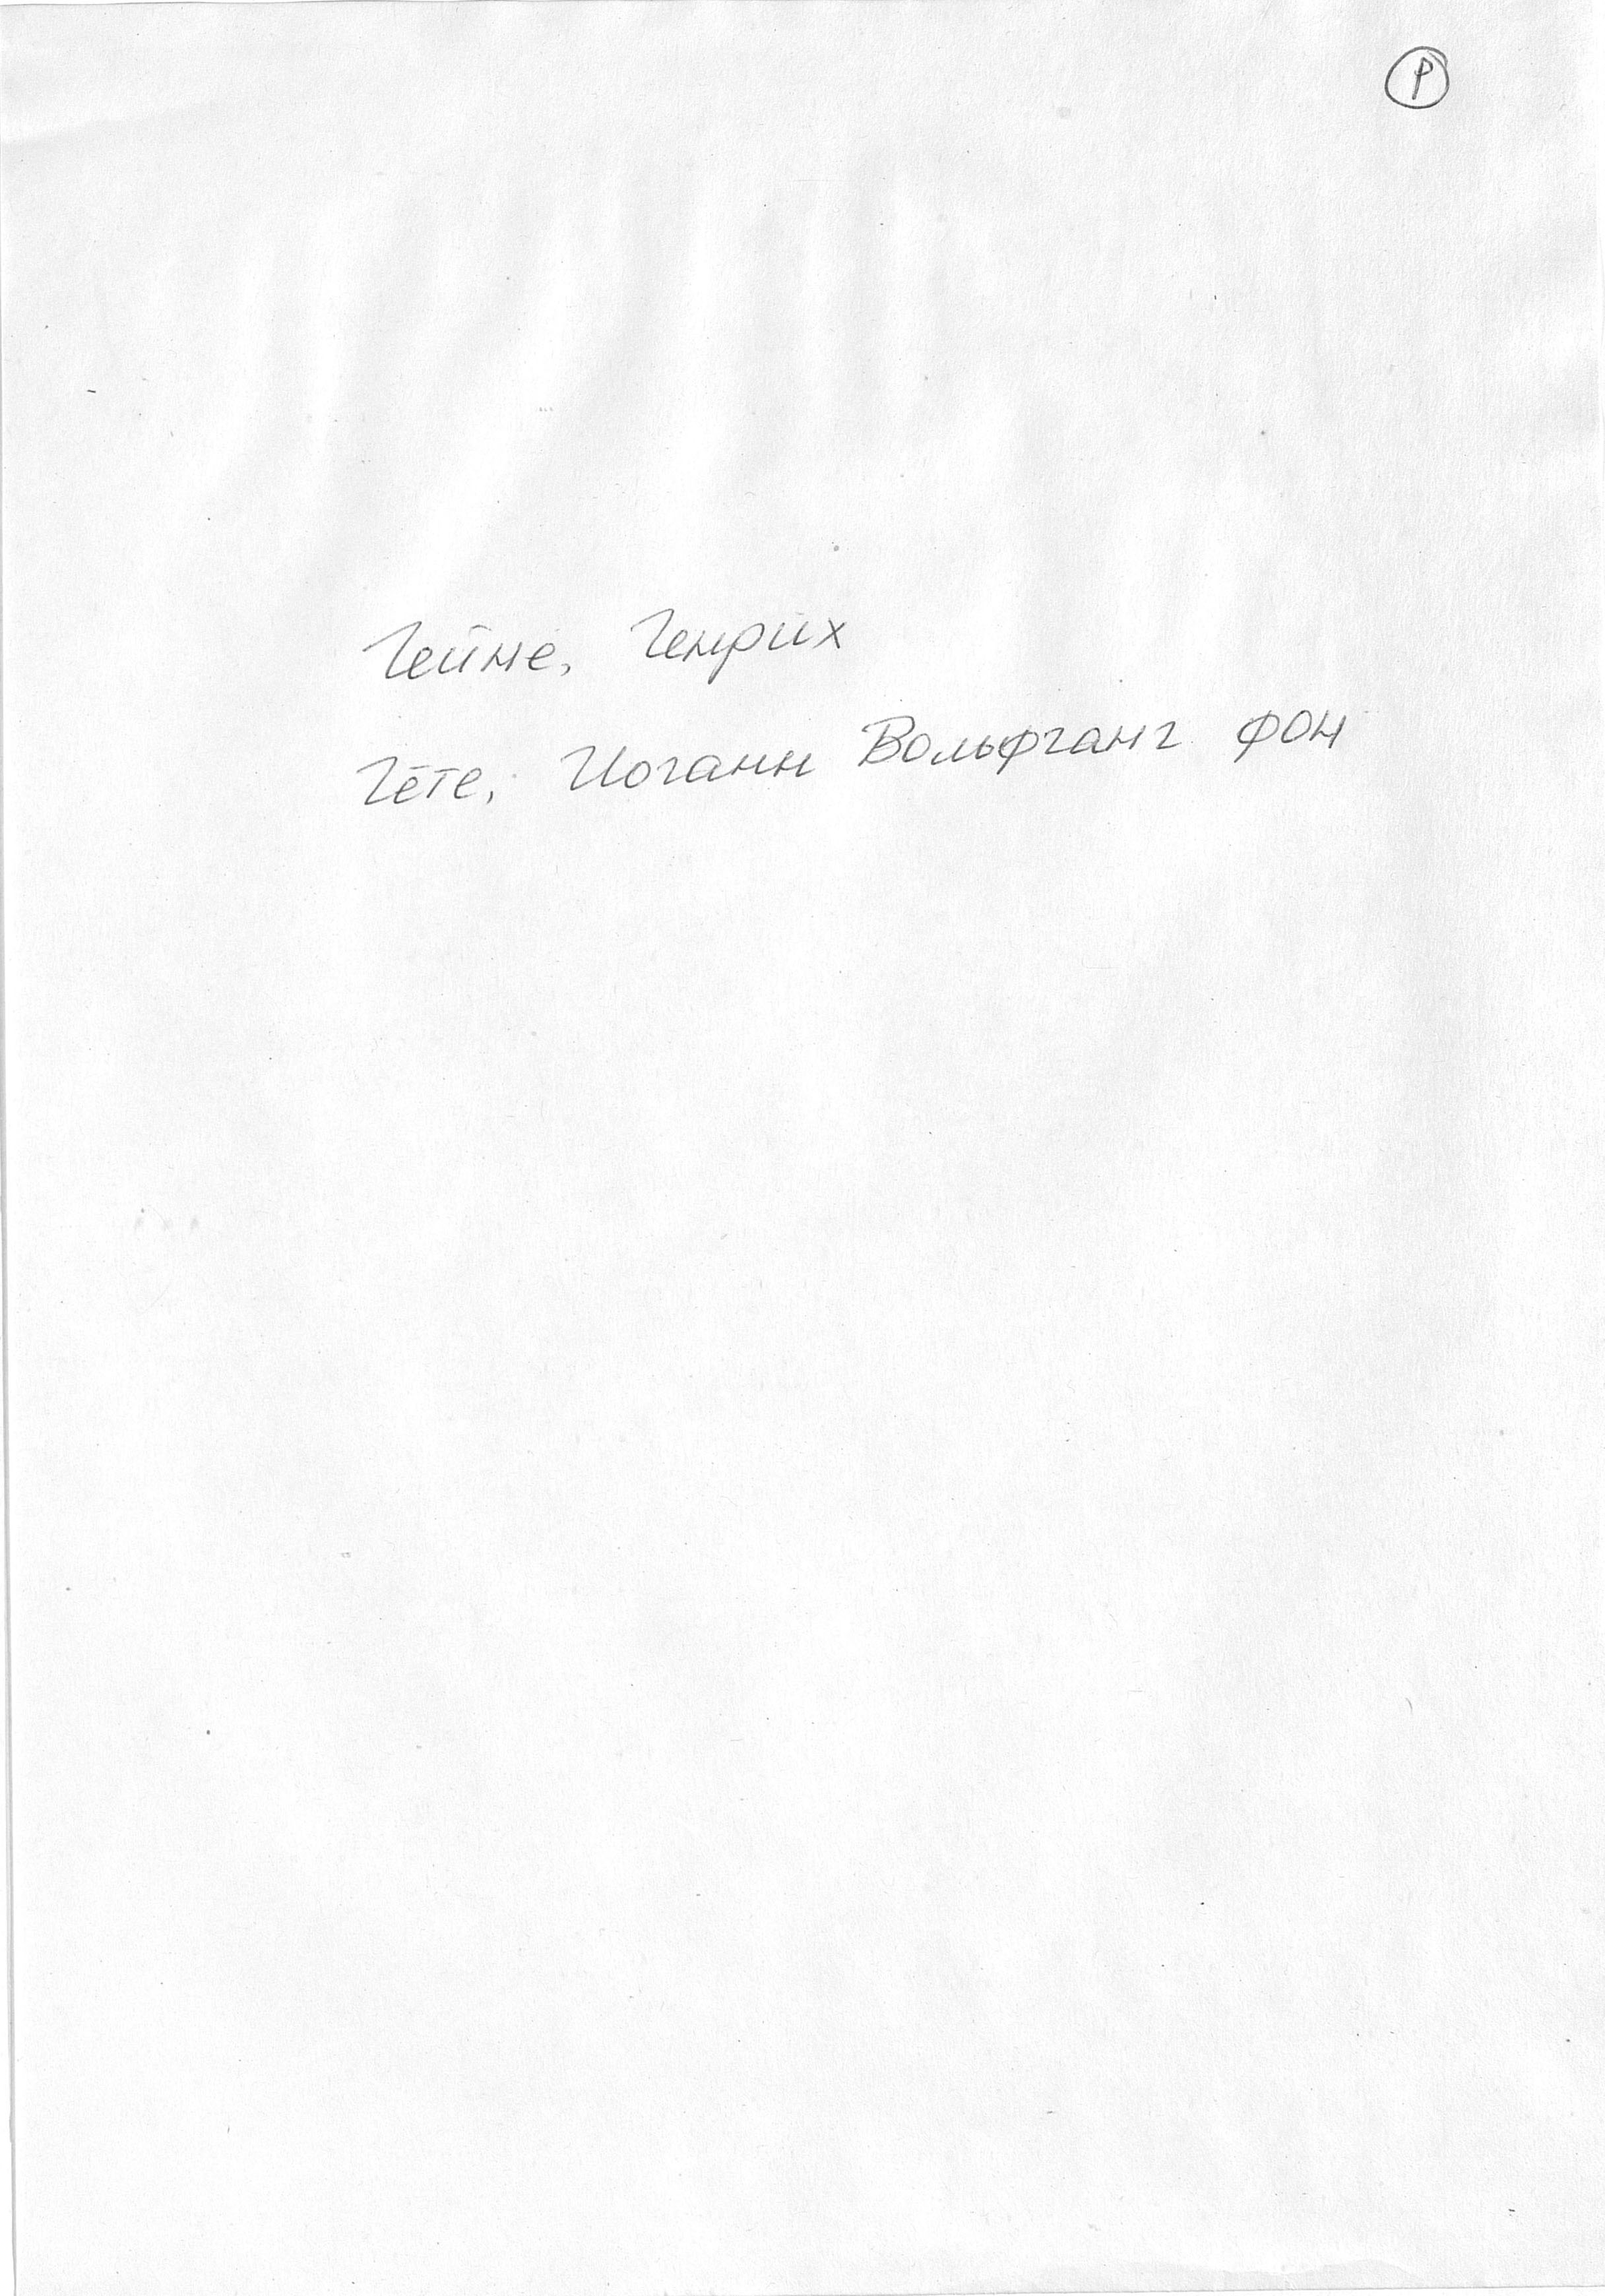 Р
Гейне, Генрих
Гёте, Иоганн Вольфганг фон